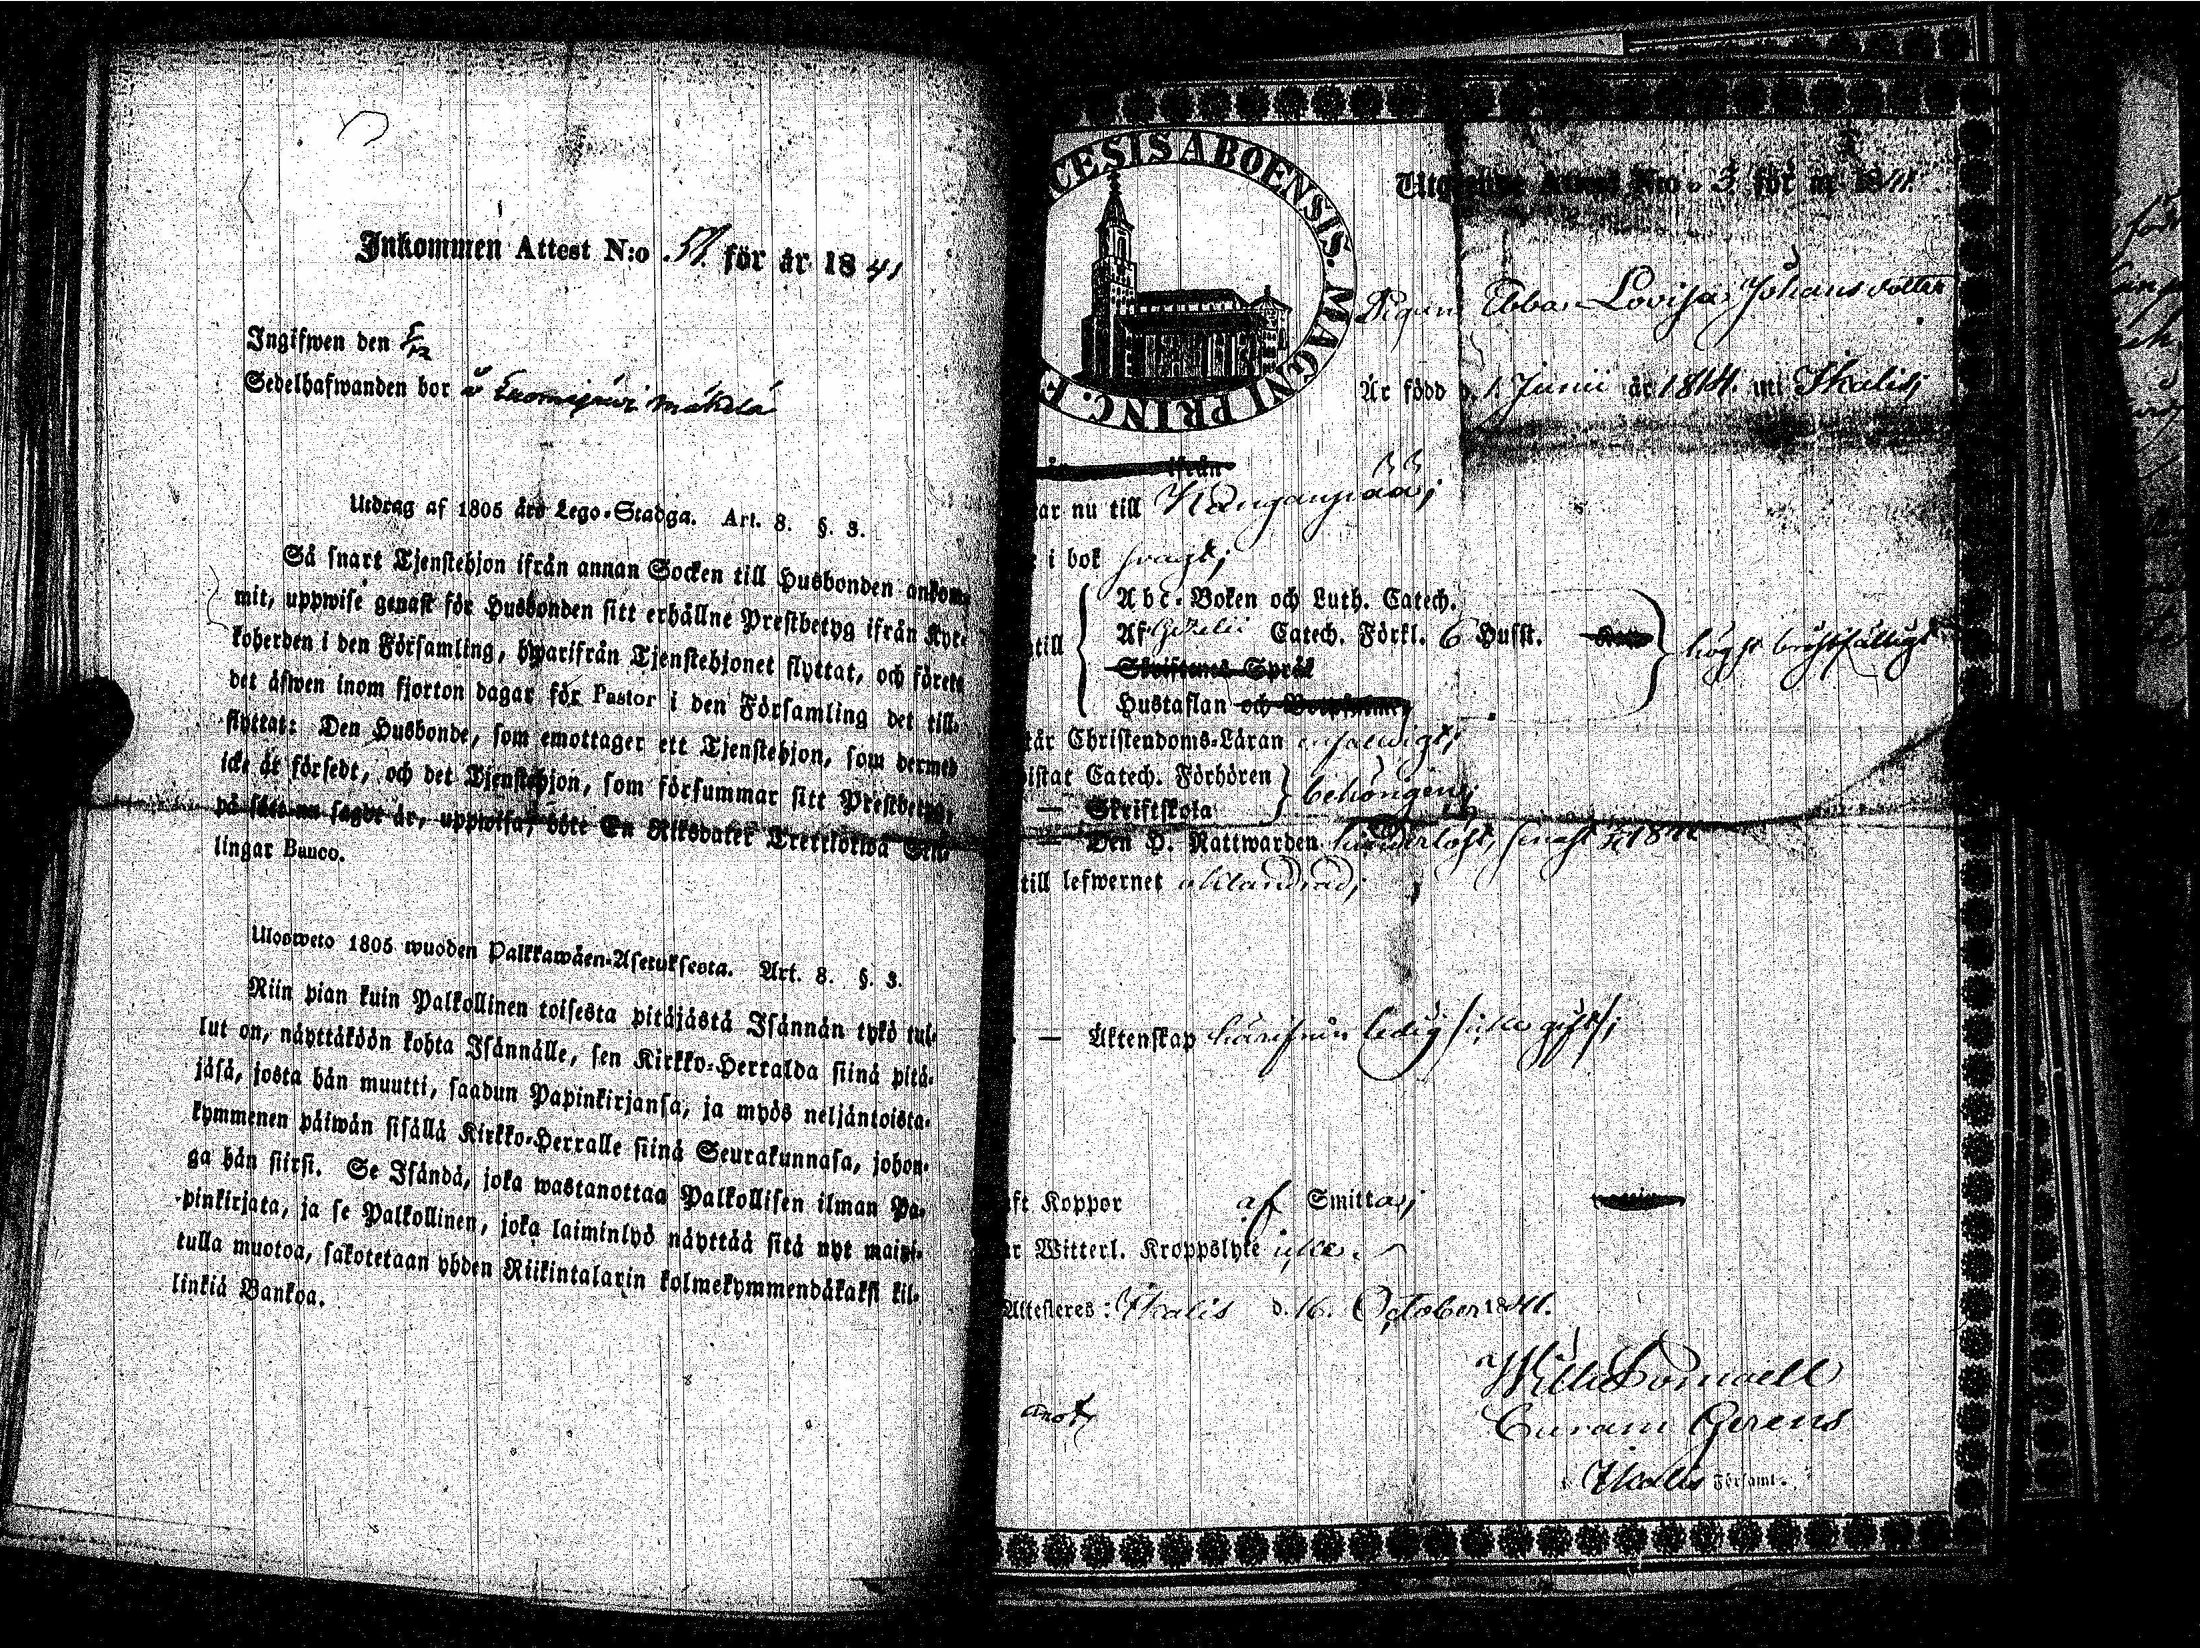 Inkommen Attest N:o 51. för år 1841
Ingifwen den 5/12
Sedelhafwanden bor å
Utdrag af 1805 års Lego-Stadga. Art. 8. §. 3.
Så snart Tjenstehjon ifrån annan Socken till Husbonden ankom-
mit, uppwise genast för Husbonden sitt erhållne Prestbetyg ifrån Kyr-
koherden i den Församling, hwarifrån Tjenstehjonet flyttat, och förete
det äfwen inom fjorton dagar för Pastor i den Församling det till-
flyttat: Den Husbonde, som emottager ett Tjenstehjon, som dermed
icke är försedt, och det Tjenstehjon, som försummar sitt Prestbetyg,
på sätt nu sagdt är, uppwisa, böte En Riksdaler Trettiotwå Skil-
lingar Banco.
Ulosweto 1805 wuoden Palkkawäen-Asetuksesta. Art. 8. §. 3.
Niin pian kuin Palkollinen toisesta pitäjästä Isännän tykö tul-
lut on, näyttäköön kohta Isännälle, sen Kirkko-Herralda siinä pitä-
jäsä, josta hän muutti, saadun Papinkirjansa, ja myös neljäntoista-
kymmenen päiwän sisällä Kirkko-Herralle siinä Seurakunnasa, johon-
ga hän siirsi. Se Isändä, joka wastanottaa Palkollisen ilman Pa-
pinkirjata, ja se Palkollinen, joka laiminlyö näyttää sitä nyt maini-
tulla muotoa, sakotetaan yhden Riikintalarin kolmekymmendäkaksi kil-
linkiä Bankoa.
CESIS ABOENSIS. MAGNI PRINC. F
Utgifwne Attest N:o 3 för år 1841.
Pigan Ebba Lovisa Johansdotter
Är född d. 1. Junii år 1814. uti Ikalis;
ifrån
ar nu till Kanganpää;
i bok svagt;
till
Abc-Boken och Luth. Catech.
Af Gezelii Catech. Förkl. 6 Husst.
högst bristfälligt
Skriftenes Språk
Hustaflan och
tår Christendoms-Läran enfaldigt;
istat Catech. Förhören
— Skriftskola
behörigen;
— Den H. Nattwarden senast 1841
till lefwernet oklandrad;
— Äktenskap härifrån ledig icke gift;
ft Koppor af Smitta;
r Witterl. Kroppslyte icke.
Attesteres: Ikalis d. 16. October 1841.
Wilh
Curam Gerens
i Ikalis Församl.
anot